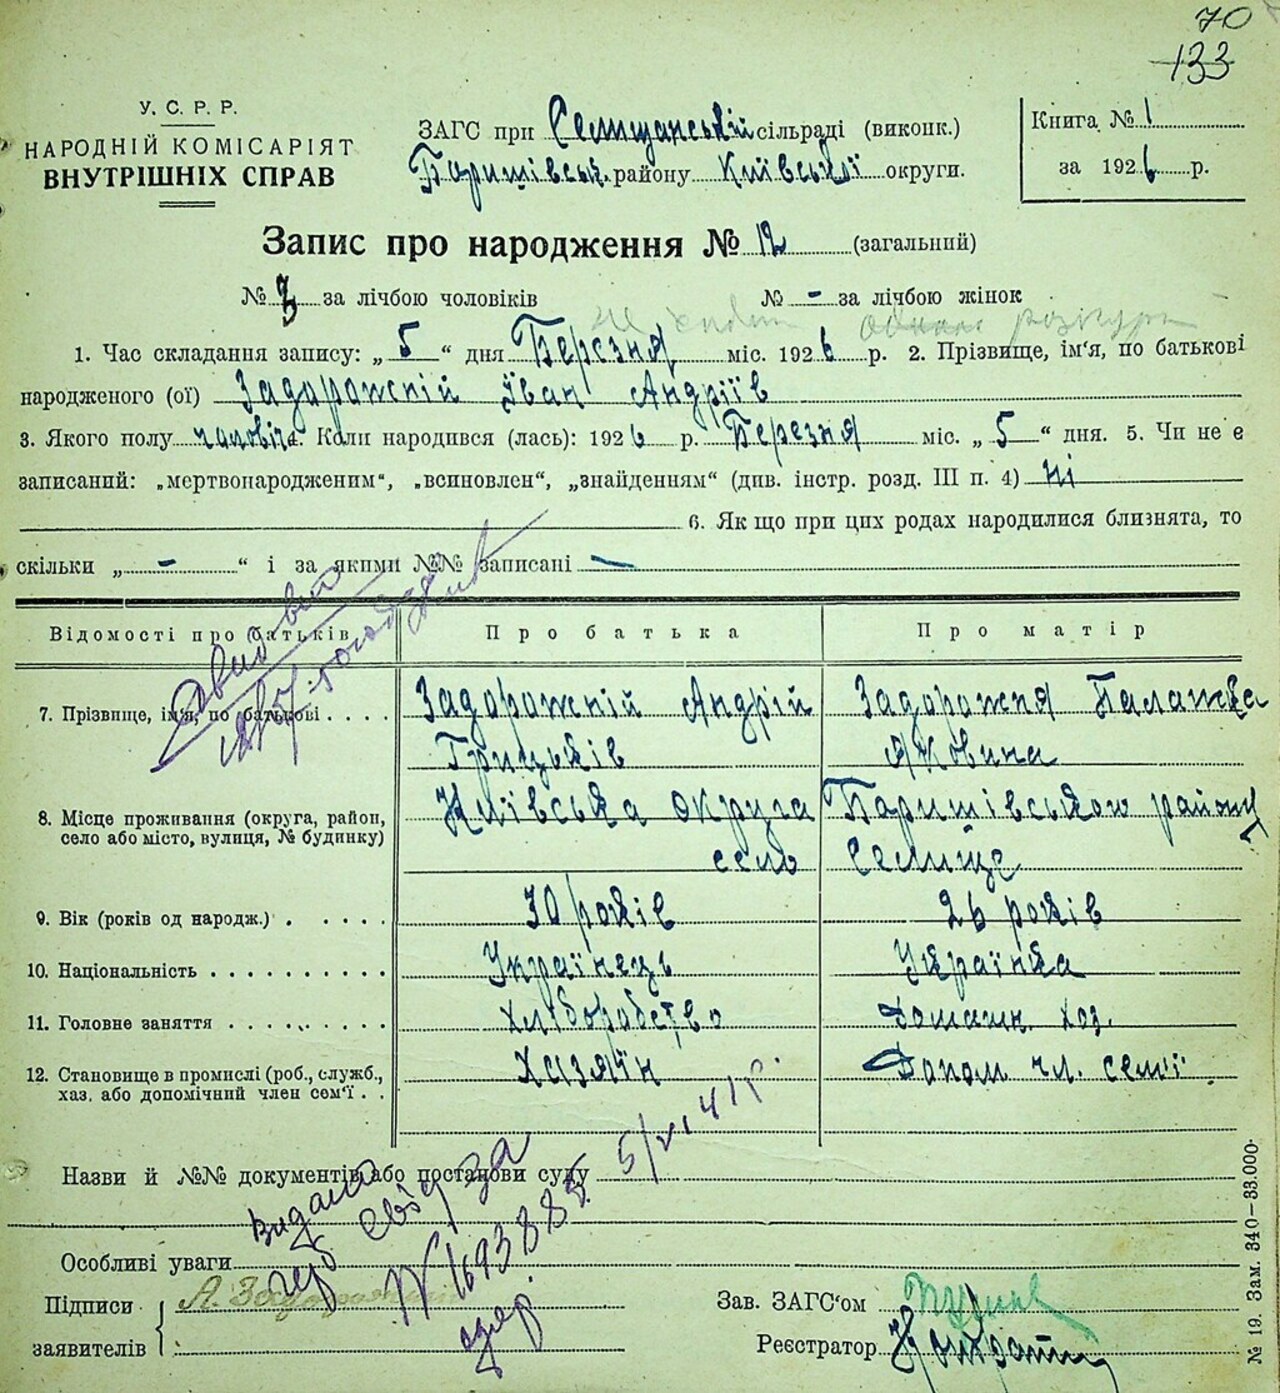 70
133
У. С. Р. Р.
НАРОДНІЙ КОМІСАРІЯТ
ВНУТРІШНІХ СПРАВ
ЗАГС при Селищанській сільраді (виконк.)
Баришівськ. району Київської округи.
Книга № 1
за 1926 р.
Запис про народження № 12 (загальний)
№ 3 за лічбою чоловіків № - за лічбою жінок
1. Час складання запису: „ 5 “ дня Березня міс. 1926 р. 2. Прізвище, ім‘я, по батькові
народженого (ої) Задорожній Їван Андріїв
3. Якого полу чоловіча. Коли народився (лась): 1926 р. Березня міс. „ 5 “ дня. 5. Чи не є
записаний: „мертвонародженим“, „всиновлен“, „знайденням“ (див. інстр. розд. III п. 4) ні
6. Як що при цих родах народилися близнята, то
скільки „ - “ і за якими №№ записані —
Відомості про батьків Про батька Про матір
7. Прізвище, ім‘я, по батькові . . . . Задорожній Андрій Задорожня Палажка
Грицьків Яковина
8. Місце проживання (округа, район, Київська округа Баришівського району
село або місто, вулиця, № будинку) село Селище
9. Вік (років од народж.) . . . . . 30 років 26 років
10. Національність . . . . . . . . . . Українець Українка
11. Головне заняття . . . . . . . . . Хліборобство Домашн. хоз.
12. Становище в промислі (роб., служб., Хазяїн Допом чл. семї
хаз. або допомічний член сем‘ї . .
Назви й №№ документів або постанови суду 5/VI 41 р.
Видано свід за
Особливі уваги № 1693885
Підписи А. Задорожній Зав. ЗАГС‘ом
заявителів Реєстратор
№ 19. Зам. 340—33.000.